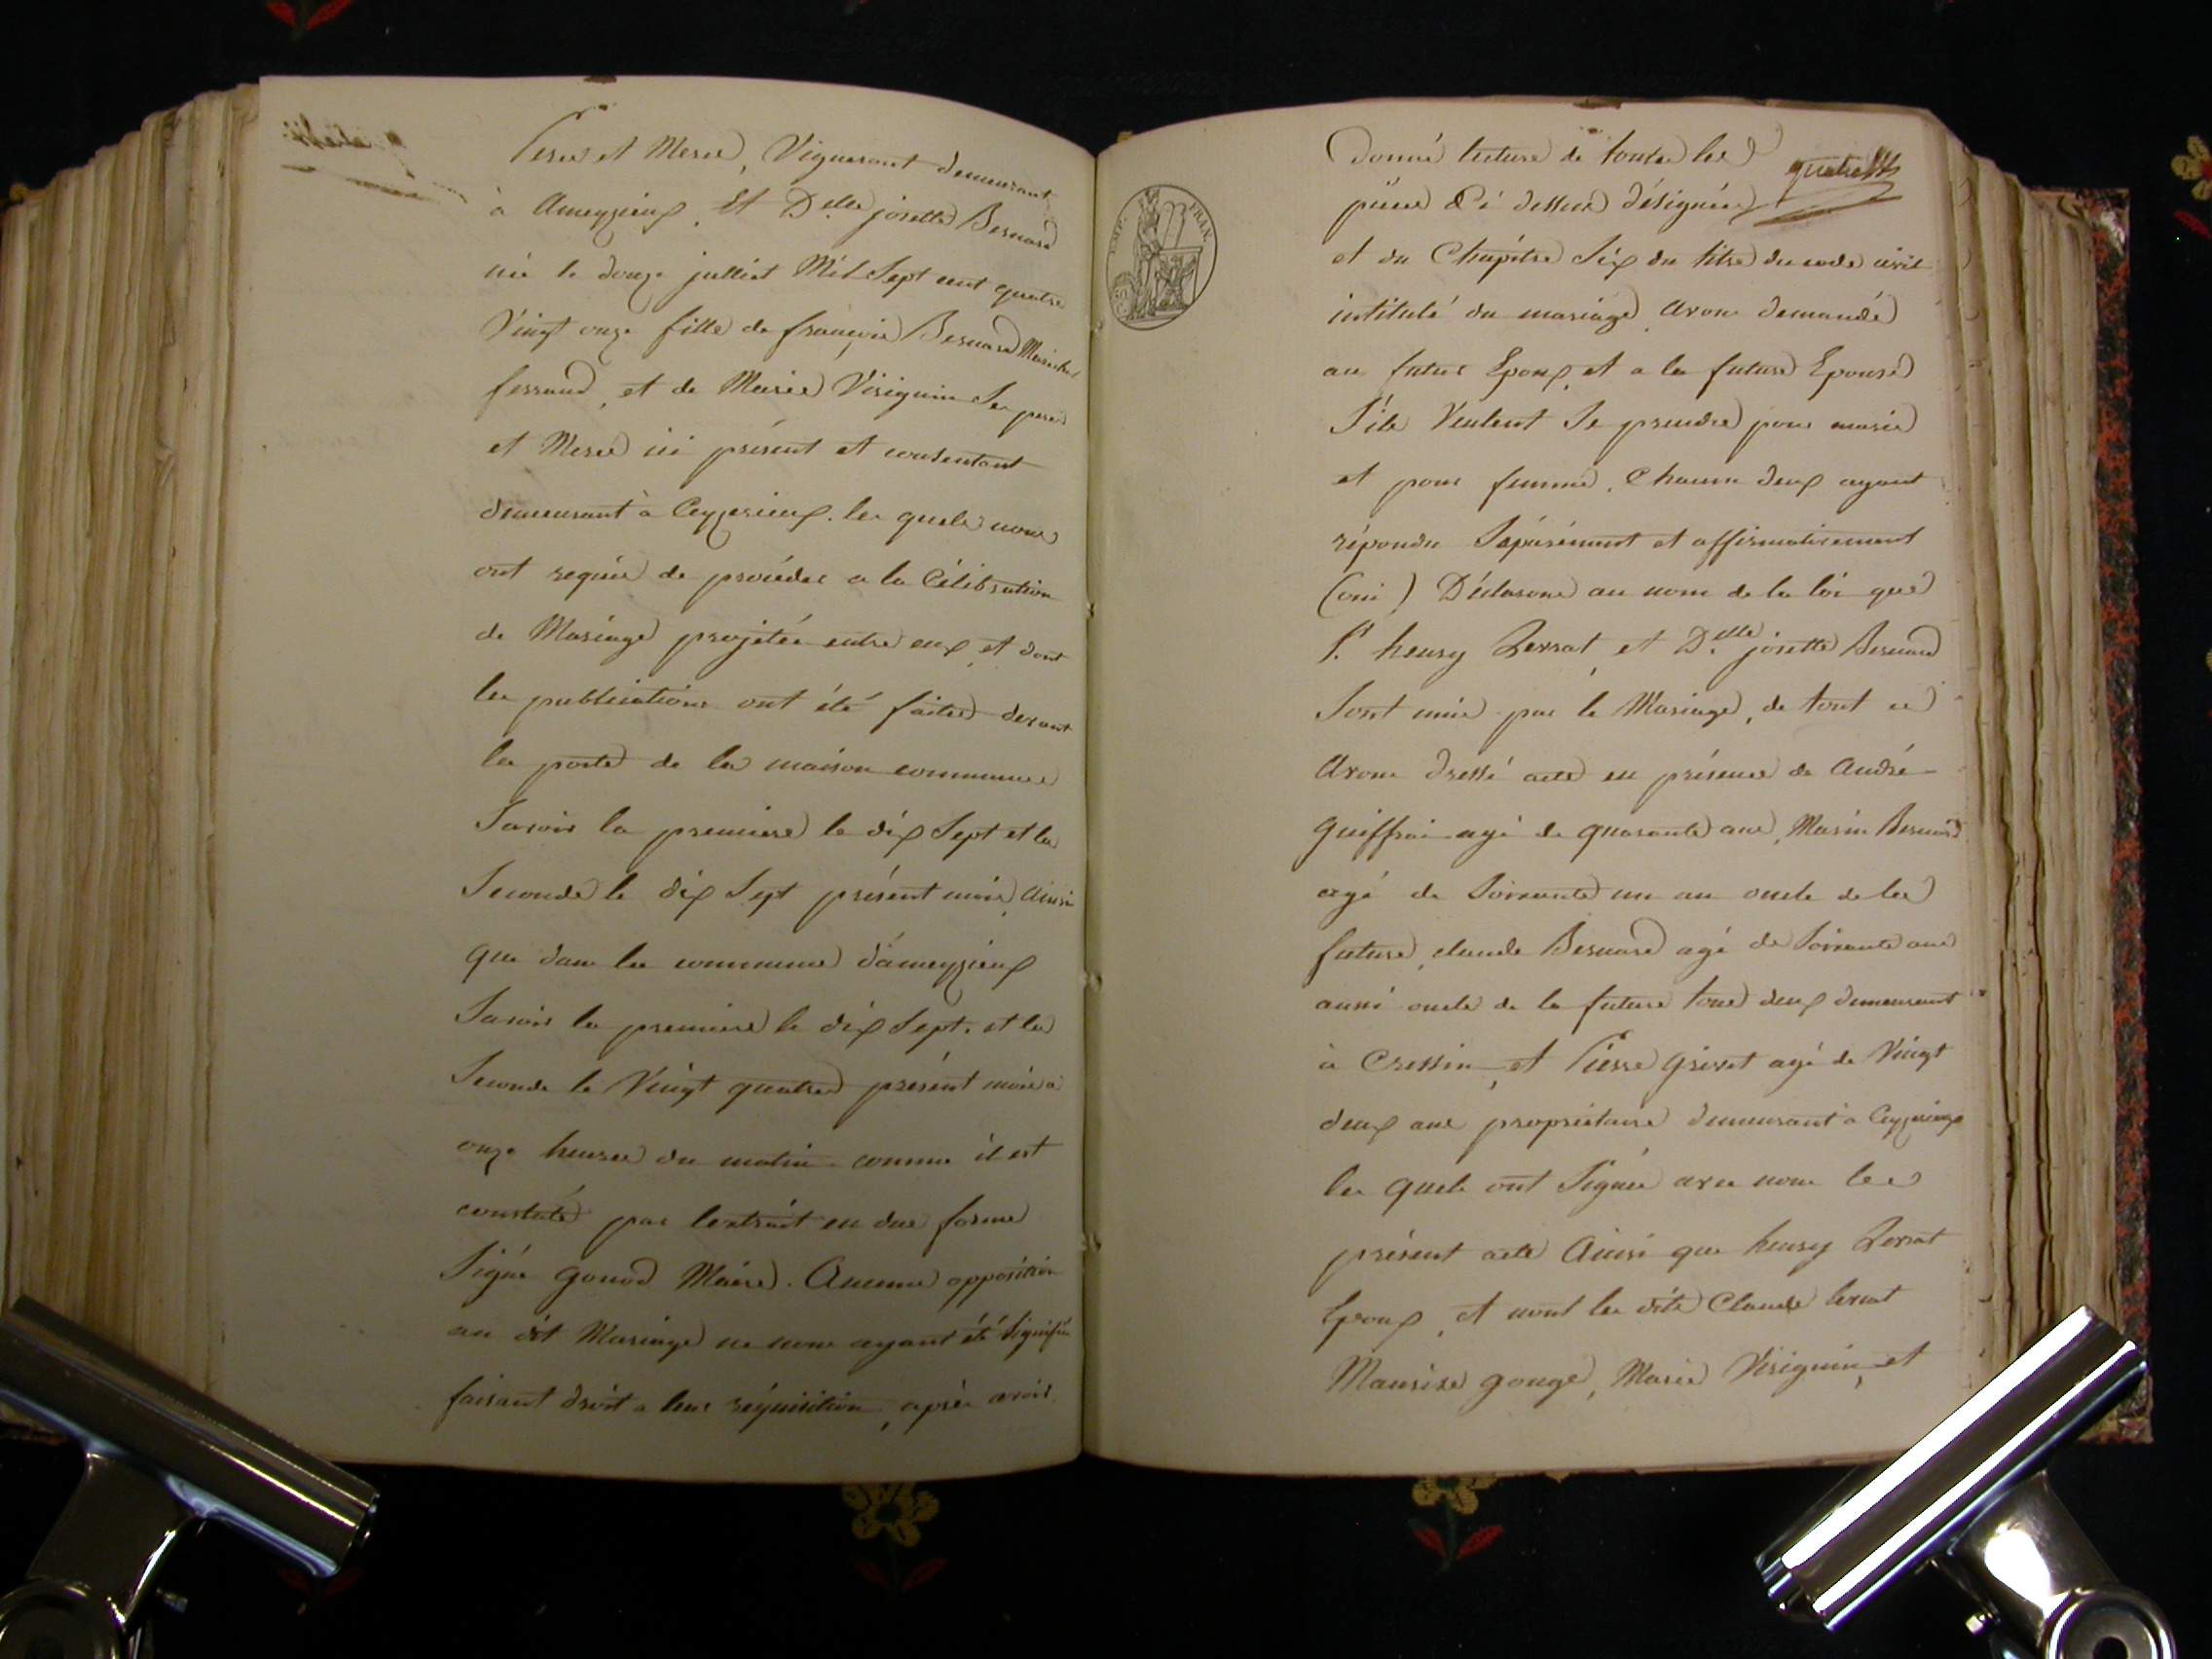 Pere et Mere, Vigneront demeurant
à Ameyzieux, Et Delle josette Bernard
née le douze julliet Mil Sept cent quatre
Vingt onze fille de françois Bernard Marechal
ferrand, et de Marie Viriguin Ses pere
et Mere ici présent et consentant
demeurant à Ceyzerieux. les quels nous
ont requis de procéder a la Célébration
de Mariage projetée entre eux, et dont
les publications ont été faites devant
la porte de la maison commune
Savoir la premiere le dix Sept et la
Seconde le dix Sept présent mois, Ainsi
que dans la commune d'ameyzieux
Savoir la premiere le dix Sept. et la
Seconde le Vingt quatre présent mois à
onze heures du matin comme il est
constaté par lextrait en due forme
Signé gonod Maire. Aucune opposition
au dit Mariage ne nous ayant été Signifiée
faisant droit a leur réquisition, après avoir
donné lecture de toutes les
quatre
pieces Ci dessus désignées
et du Chapitre Six du titre du code civil
intitulé du mariage, avons demandé
au futur Epoux, et a la future Epouse
S'ils Veulent Se prendre pour marie
et pour femme. Chacun deux ayant
répondu Séparément et affirmativement
(oui) Déclarons au nom de la loi que
Sr henry Perrat, et Delle josette Bernard
Sont unis par le Mariage, de tout ce
Avons dressé acte en présence de André
guiffrai agé de quarante ans, Marin Bernard
agé de Soixante un ans oncle de la
future, claude Bernard agé de Soixante ans
aussi oncle de la future tous deux demeurant
à Cressin, et Pierre grivet agé de Vingt
deux ans propriétaire demeurant à Ceyzerieux
les quels ont Signés avec nous le
présent acte Ainsi que henry Perrat
Epoux, et nont les dits Claude Perrat
Maurise gouge, Marie Viriguin, et
EMP. FRAN.